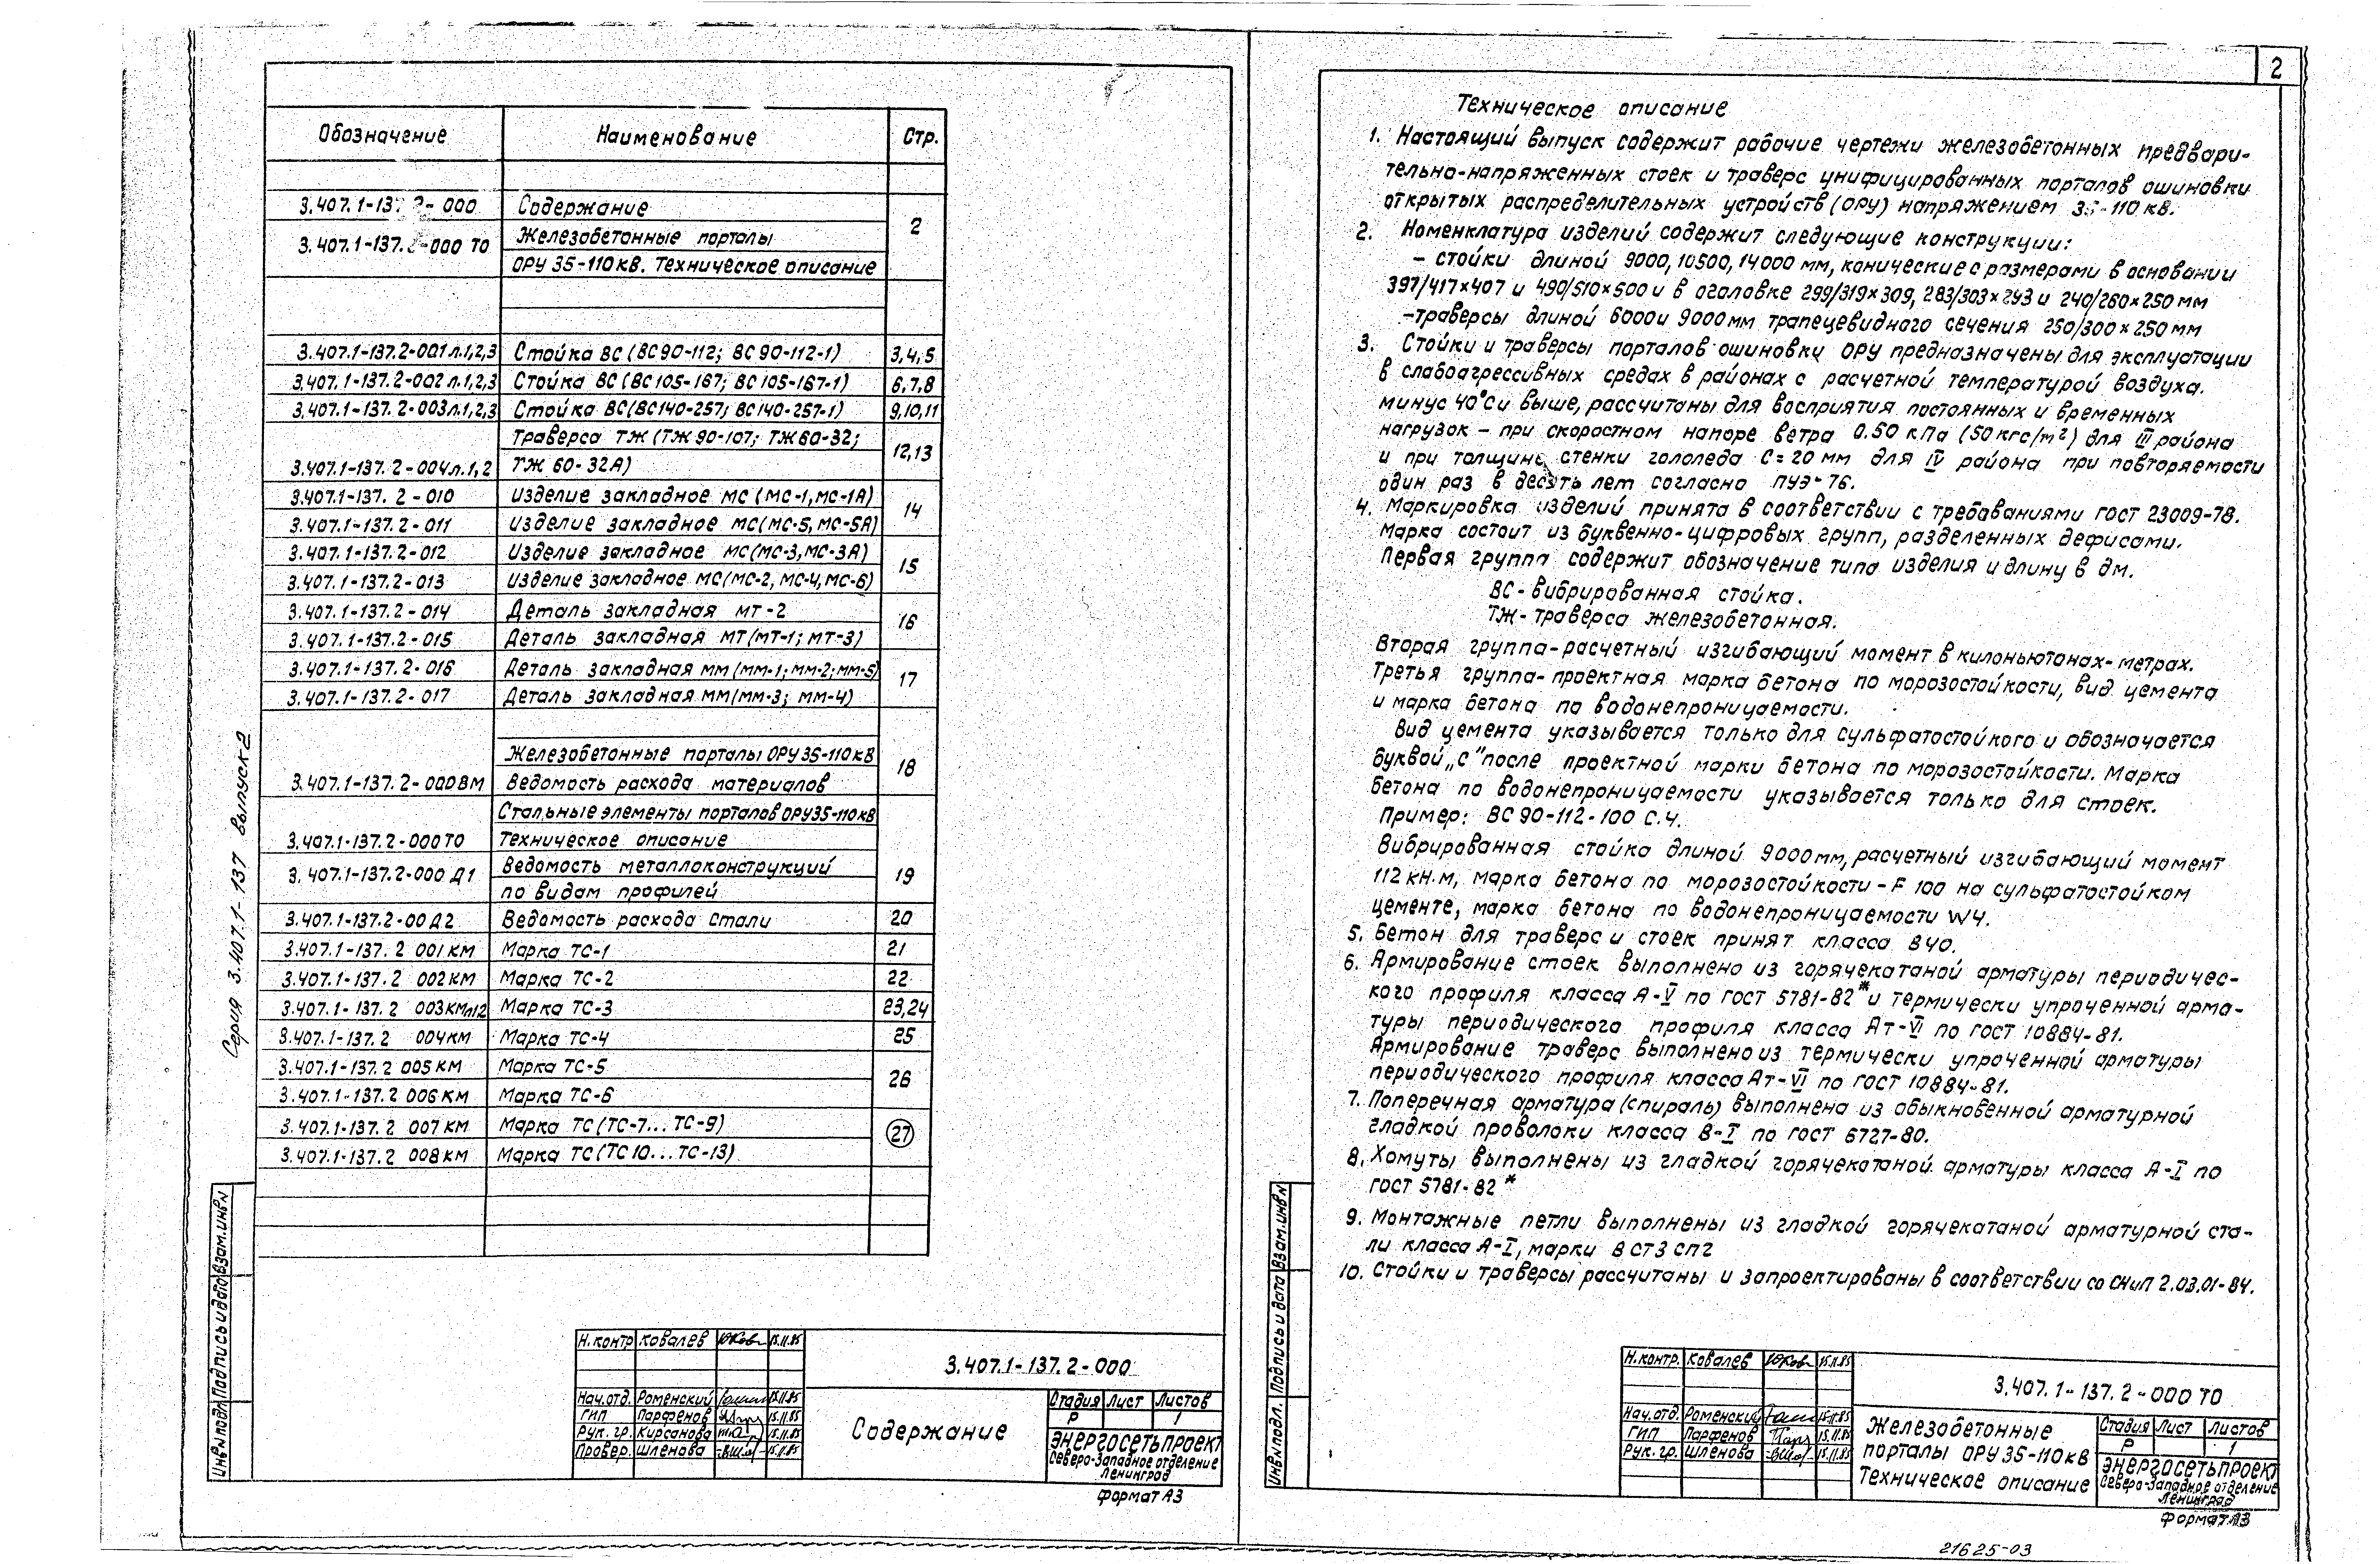 Обозначение Наименование Стр.
3.407.1-137.2-000 Содержание 2
3.407.1-137.2-000 ТО Железобетонные порталы
ОРУ 35-110 кв. Техническое описание
3.407.1-137.2-001 л.1,2,3 Стойка ВС (ВС90-112; ВС90-112-1) 3,4,5
3.407.1-137.2-002 л.1,2,3 Стойка ВС (ВС105-167; ВС105-167-1) 6,7,8
3.407.1-137.2-003 л.1,2,3 Стойка ВС (ВС140-257; ВС140-257-1) 9,10,11
Траверса ТЖ (ТЖ 90-107; ТЖ 60-32; 12,13
3.407.1-137.2-004 л.1,2 ТЖ 60-32А)
3.407.1-137.2-010 Изделие закладное МС (МС-1, МС-1А) 14
3.407.1-137.2-011 Изделие закладное МС (МС-5, МС-5А)
3.407.1-137.2-012 Изделие закладное МС (МС-3, МС-3А) 15
3.407.1-137.2-013 Изделие закладное МС (МС-2, МС-4, МС-6)
3.407.1-137.2-014 Деталь закладная МТ-2 16
3.407.1-137.2-015 Деталь закладная МТ (МТ-1; МТ-3)
3.407.1-137.2-016 Деталь закладная ММ (ММ-1; ММ-2; ММ-5) 17
3.407.1-137.2-017 Деталь закладная ММ (ММ-3; ММ-4)
Железобетонные порталы ОРУ 35-110 кв 18
3.407.1-137.2-000ВМ Ведомость расхода материалов
Стальные элементы порталов ОРУ 35-110 кв
3.407.1-137.2-000ТО Техническое описание
3.407.1-137.2-000 Д1 Ведомость металлоконструкций 19
по видам профилей
3.407.1-137.2-00 Д2 Ведомость расхода стали 20
3.407.1-137.2 001 КМ Марка ТС-1 21
3.407.1-137.2 002 КМ Марка ТС-2 22
3.407.1-137.2 003КМл1,2 Марка ТС-3 23,24
3.407.1-137.2 004КМ Марка ТС-4 25
3.407.1-137.2 005 КМ Марка ТС-5 26
3.407.1-137.2 006 КМ Марка ТС-6
3.407.1-137.2 007 КМ Марка ТС (ТС-7...ТС-9) 27
3.407.1-137.2 008 КМ Марка ТС (ТС 10...ТС-13)
Серия 3.407.1-137 Выпуск 2
Инв.№ подл. Подпись и дата Взам.инв.№
Н.контр Ковалев 15.11.85
3.407.1-137.2-000
Нач.отд. Роменский 15.11.85
ГИП Парфенов 15.11.85
Рук. гр. Кирсанова 15.11.85
Провер. Шленова 15.11.85
Содержание
Стадия Лист Листов
Р 1
ЭНЕРГОСЕТЬПРОЕКТ
Северо-Западное отделение
Ленинград
Формат А3
2
Техническое описание
1. Настоящий выпуск содержит рабочие чертежи железобетонных предвари-
тельно-напряженных стоек и траверс унифицированных порталов ошиновки
открытых распределительных устройств (ОРУ) напряжением 35-110 кв.
2. Номенклатура изделий содержит следующие конструкции:
- стойки длиной 9000, 10500, 14000 мм, конические с размерами в основании
397/417×407 и 490/510×500 и в оголовке 299/319×309, 283/303×293 и 240/260×250 мм
- траверсы длиной 6000 и 9000 мм трапецевидного сечения 250/300×250 мм
3. Стойки и траверсы порталов ошиновки ОРУ предназначены для эксплуатации
в слабоагрессивных средах в районах с расчетной температурой воздуха.
минус 40°С и выше, рассчитаны для восприятия постоянных и временных
нагрузок - при скоростном напоре ветра 0.50 кПа (50 кгс/м²) для III района
и при толщине стенки гололеда С=20 мм для IV района при повторяемости
один раз в десять лет согласно ПУЭ-76.
4. Маркировка изделий принята в соответствии с требованиями ГОСТ 23009-78.
Марка состоит из буквенно-цифровых групп, разделенных дефисами.
Первая группа содержит обозначение типа изделия и длину в дм.
ВС - вибрированная стойка.
ТЖ - траверса железобетонная.
Вторая группа - расчетный изгибающий момент в килоньютонах-метрах.
Третья группа - проектная марка бетона по морозостойкости, вид цемента
и марка бетона по водонепроницаемости.
Вид цемента указывается только для сульфатостойкого и обозначается
буквой „С" после проектной марки бетона по морозостойкости. Марка
бетона по водонепроницаемости указывается только для стоек.
Пример: ВС 90-112-100 С.4.
Вибрированная стойка длиной 9000 мм, расчетный изгибающий момент
112 кН.м, марка бетона по морозостойкости - F 100 на сульфатостойком
цементе, марка бетона по водонепроницаемости W4.
5. Бетон для траверс и стоек принят класса В40.
6. Армирование стоек выполнено из горячекатаной арматуры периодичес-
кого профиля класса А-V по ГОСТ 5781-82* и термически упроченной арма-
туры периодического профиля класса Ат-VI по ГОСТ 10884-81.
Армирование траверс выполнено из термически упроченной арматуры
периодического профиля класса Ат-VI по ГОСТ 10884-81.
7. Поперечная арматура (спираль) выполнена из обыкновенной арматурной
гладкой проволоки класса В-I по ГОСТ 6727-80.
8. Хомуты выполнены из гладкой горячекатаной арматуры класса А-I по
ГОСТ 5781-82*
9. Монтажные петли выполнены из гладкой горячекатаной арматурной ста-
ли класса А-I, марки В СТ3 СП2
10. Стойки и траверсы рассчитаны и запроектированы в соответствии со СНиП 2.03.01-84.
Инв.№ подл. Подпись и дата Взам.инв.№
Н.контр. Ковалев 15.11.85
3.407.1-137.2-000 ТО
Нач.отд. Роменский 15.11.85
ГИП Парфенов 15.11.85
Рук. гр. Шленова 15.11.85
Железобетонные
порталы ОРУ 35-110 кв
Техническое описание
Стадия Лист Листов
Р 1
ЭНЕРГОСЕТЬПРОЕКТ
Северо-Западное отделение
Ленинград
Формат А3
21625-03